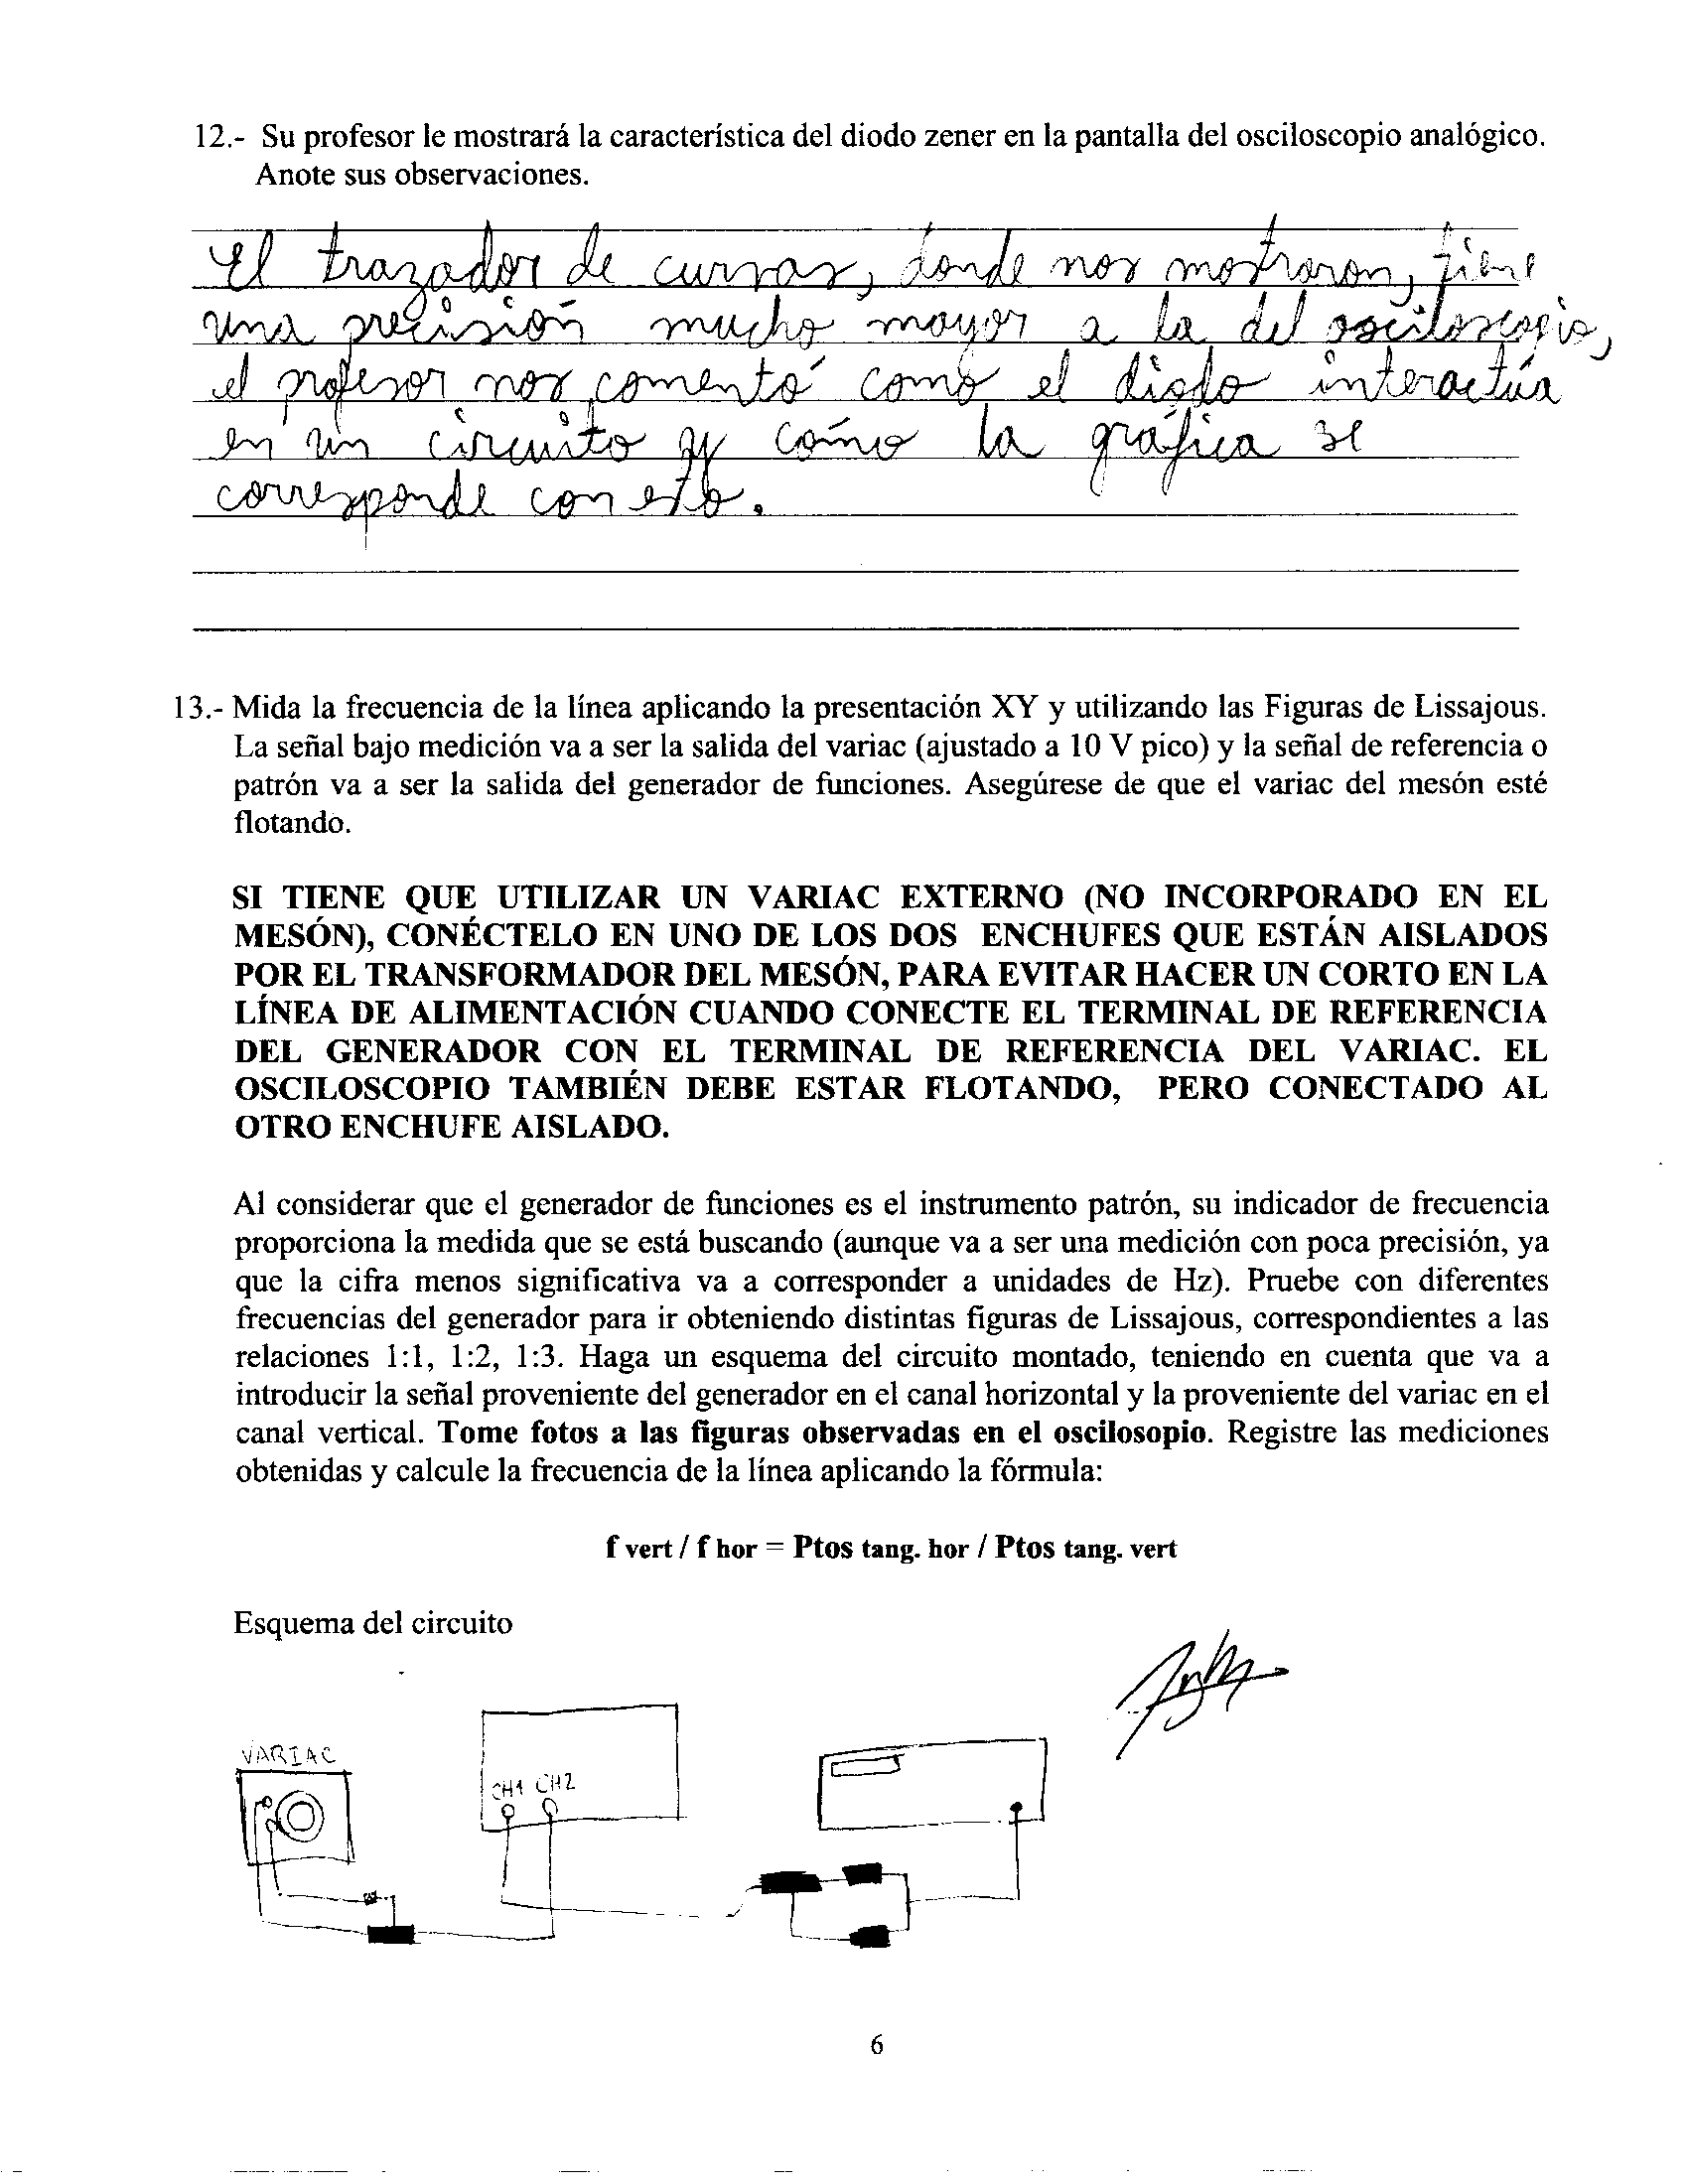 12.- Su profesor le mostrará la característica del diodo zener en la pantalla del osciloscopio analógico.
Anote sus observaciones.
El trazador de curvas, donde nos mostraron, tiene
una precisión mucho mayor a la del osciloscopio,
el profesor nos comentó como el diodo interactúa
en un circuito y cómo la gráfica se
corresponde con esto.
13.- Mida la frecuencia de la línea aplicando la presentación XY y utilizando las Figuras de Lissajous.
La señal bajo medición va a ser la salida del variac (ajustado a 10 V pico) y la señal de referencia o
patrón va a ser la salida del generador de funciones. Asegúrese de que el variac del mesón esté
flotando.
SI TIENE QUE UTILIZAR UN VARIAC EXTERNO (NO INCORPORADO EN EL
MESÓN), CONÉCTELO EN UNO DE LOS DOS ENCHUFES QUE ESTÁN AISLADOS
POR EL TRANSFORMADOR DEL MESÓN, PARA EVITAR HACER UN CORTO EN LA
LÍNEA DE ALIMENTACIÓN CUANDO CONECTE EL TERMINAL DE REFERENCIA
DEL GENERADOR CON EL TERMINAL DE REFERENCIA DEL VARIAC. EL
OSCILOSCOPIO TAMBIÉN DEBE ESTAR FLOTANDO, PERO CONECTADO AL
OTRO ENCHUFE AISLADO.
Al considerar que el generador de funciones es el instrumento patrón, su indicador de frecuencia
proporciona la medida que se está buscando (aunque va a ser una medición con poca precisión, ya
que la cifra menos significativa va a corresponder a unidades de Hz). Pruebe con diferentes
frecuencias del generador para ir obteniendo distintas figuras de Lissajous, correspondientes a las
relaciones 1:1, 1:2, 1:3. Haga un esquema del circuito montado, teniendo en cuenta que va a
introducir la señal proveniente del generador en el canal horizontal y la proveniente del variac en el
canal vertical. Tome fotos a las figuras observadas en el oscilosopio. Registre las mediciones
obtenidas y calcule la frecuencia de la línea aplicando la fórmula:
f vert / f hor = Ptos tang. hor / Ptos tang. vert
Esquema del circuito
VARIAC
CH1 CH2
6